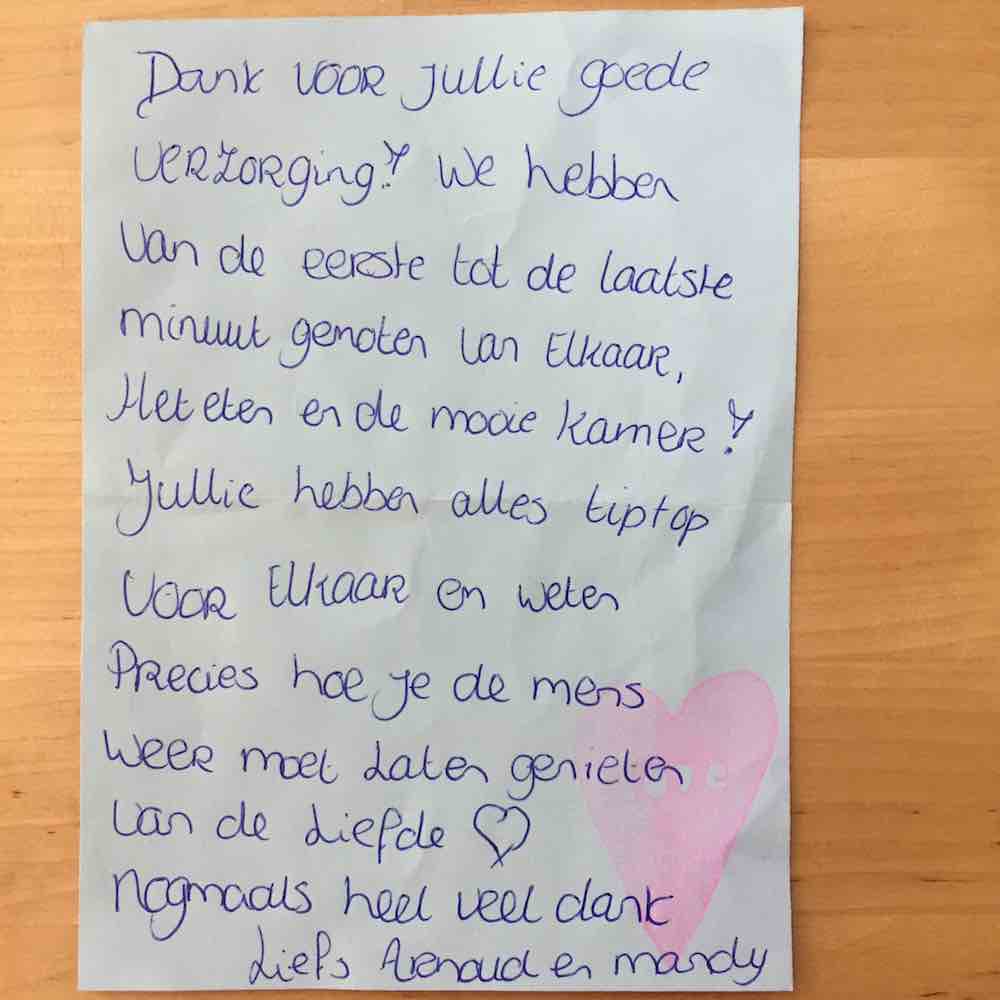 Dank voor jullie goede
verzorging! We hebben
van de eerste tot de laatste
minuut genoten van Elkaar,
Het eten en de mooie kamer!
Jullie hebben alles tiptop
voor Elkaar en weten
Precies hoe je de mens
weer moet Laten genieten
van de Liefde ♡
Nogmaals heel veel dank
Liefs Arnoud en mandy